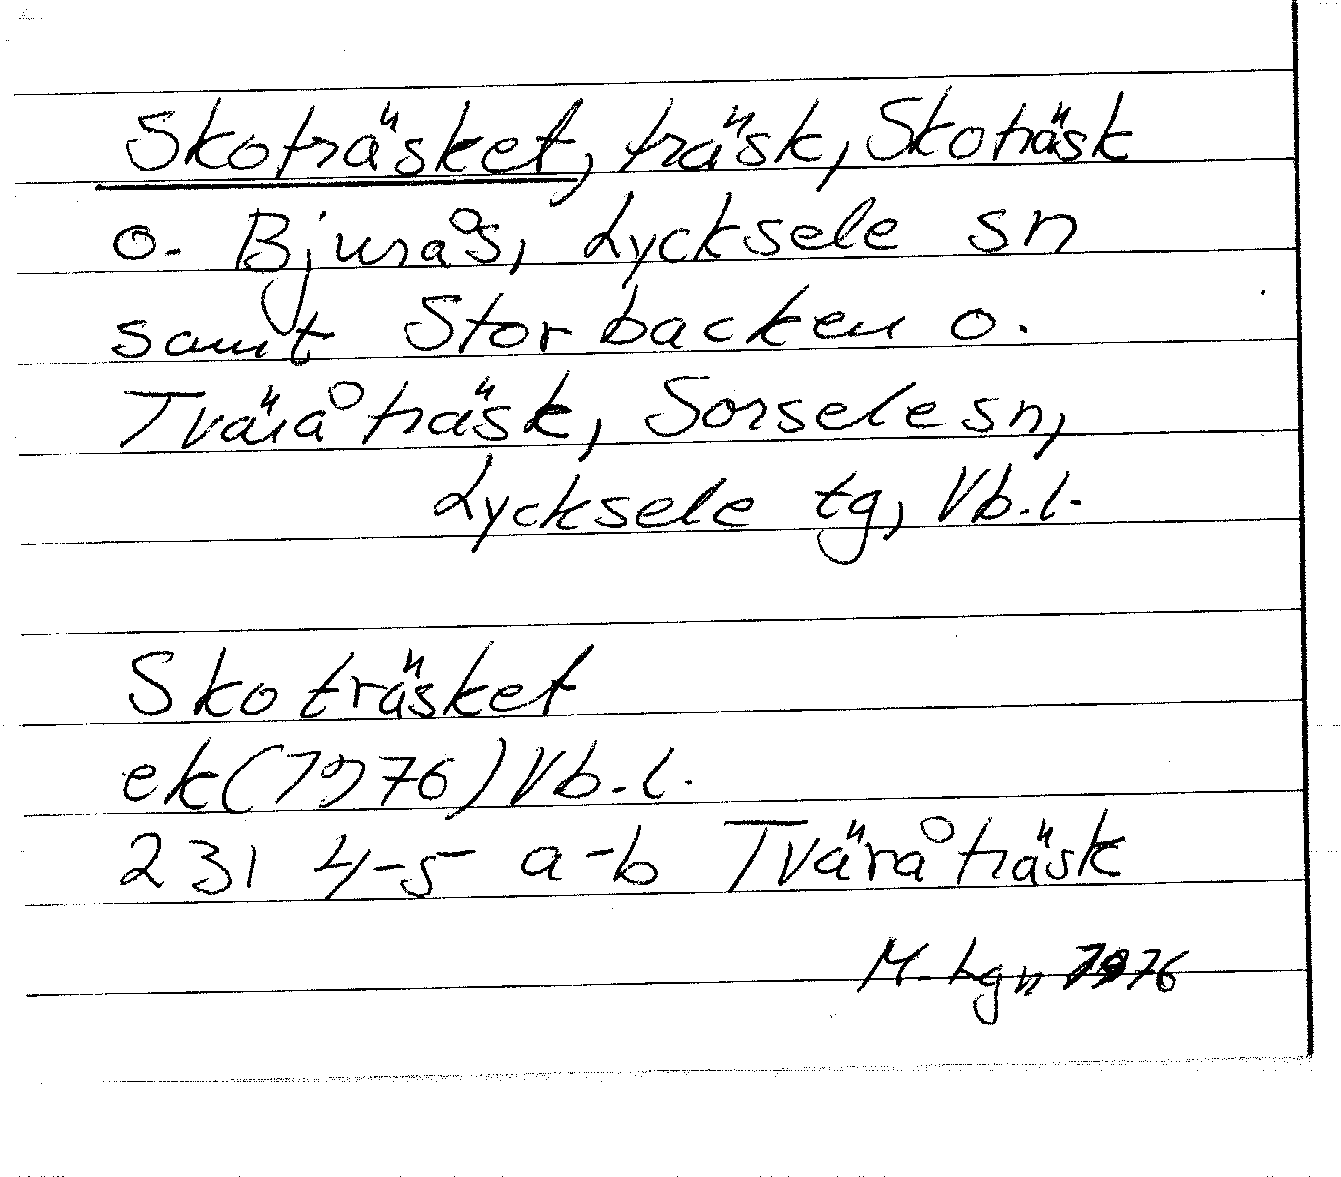 Skoträsket, träsk, Skoträsk
o. Bjurås, Lycksele sn
samt Storbacken o.
Tväråträsk, Sorsele sn,
Lycksele tg, Vb.l.
Skoträsket
ek (1976) Vb.l.
231 4-5 a-b Tväråträsk
M. Lgn 1976